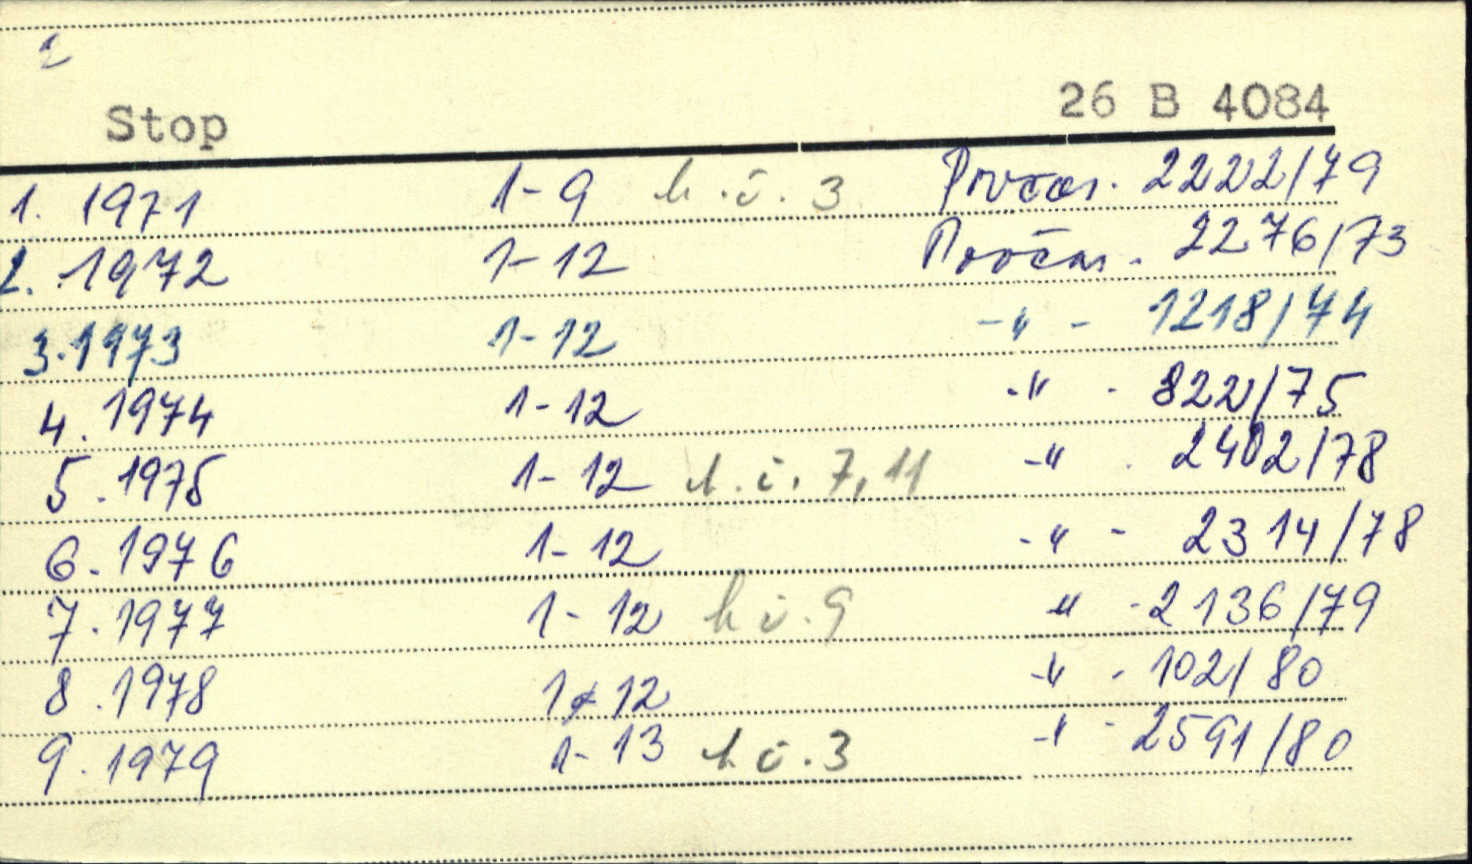 2
Stop 26 B 4084
1. 1971 1-9 h.č. 3 Povčas. 2222/79
2. 1972 1-12 Povčas. 2276/73
3. 1973 1-12 -"- 1218/74
4. 1974 1-12 -"- 822/75
5. 1975 1-12 h.č. 7, 11 -" 2402/78
6. 1976 1-12 -"- 2314/78
7. 1977 1-12 h č. 9 " - 2136/79
8. 1978 1-12 -"- 102/80
9. 1979 1-13 h č. 3 -"- 2591/80